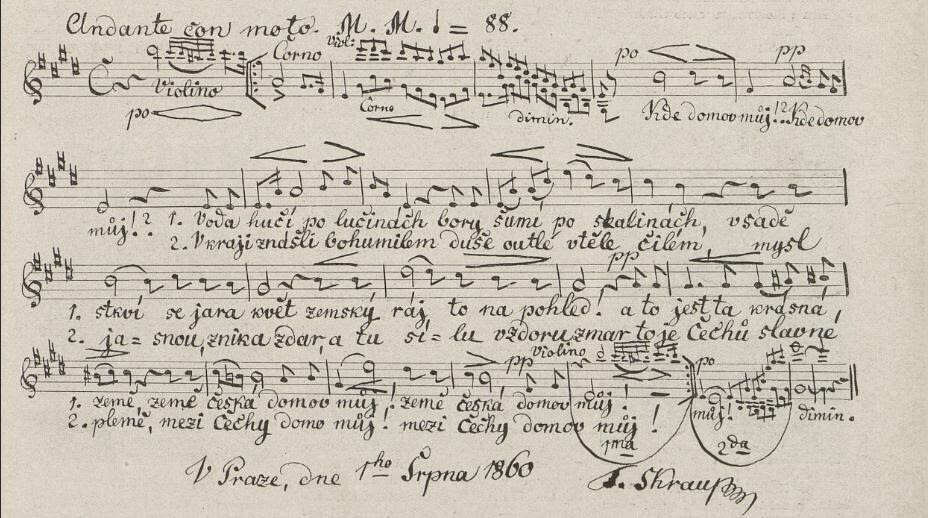 Andante con moto. M. M. ♩ = 88.
Viol: Corno po pp
Violino Corno dimin. Kde domov můj!? Kde domov
po
můj!? 1. Voda hučí po lučinách bory šumí po skalinách, v sadě
2. V kraji znášli bohumilem duše outlé v těle čilém, mysl
pp
1. stkví se jara květ zemský ráj to na pohled! a to jest ta krásná,
2. ja=snou, znik a zdar, a tu sí=lu vzdoru zmar to je Čechů slavné
pp Violino po
1. země, země česká domov můj, země česká domov můj! můj! dimin.
2. plemě, mezi Čechy domo můj! mezi Čechy domov můj!
1ma 2da
V Praze, dne 1ho Srpna 1860 F. Skraup